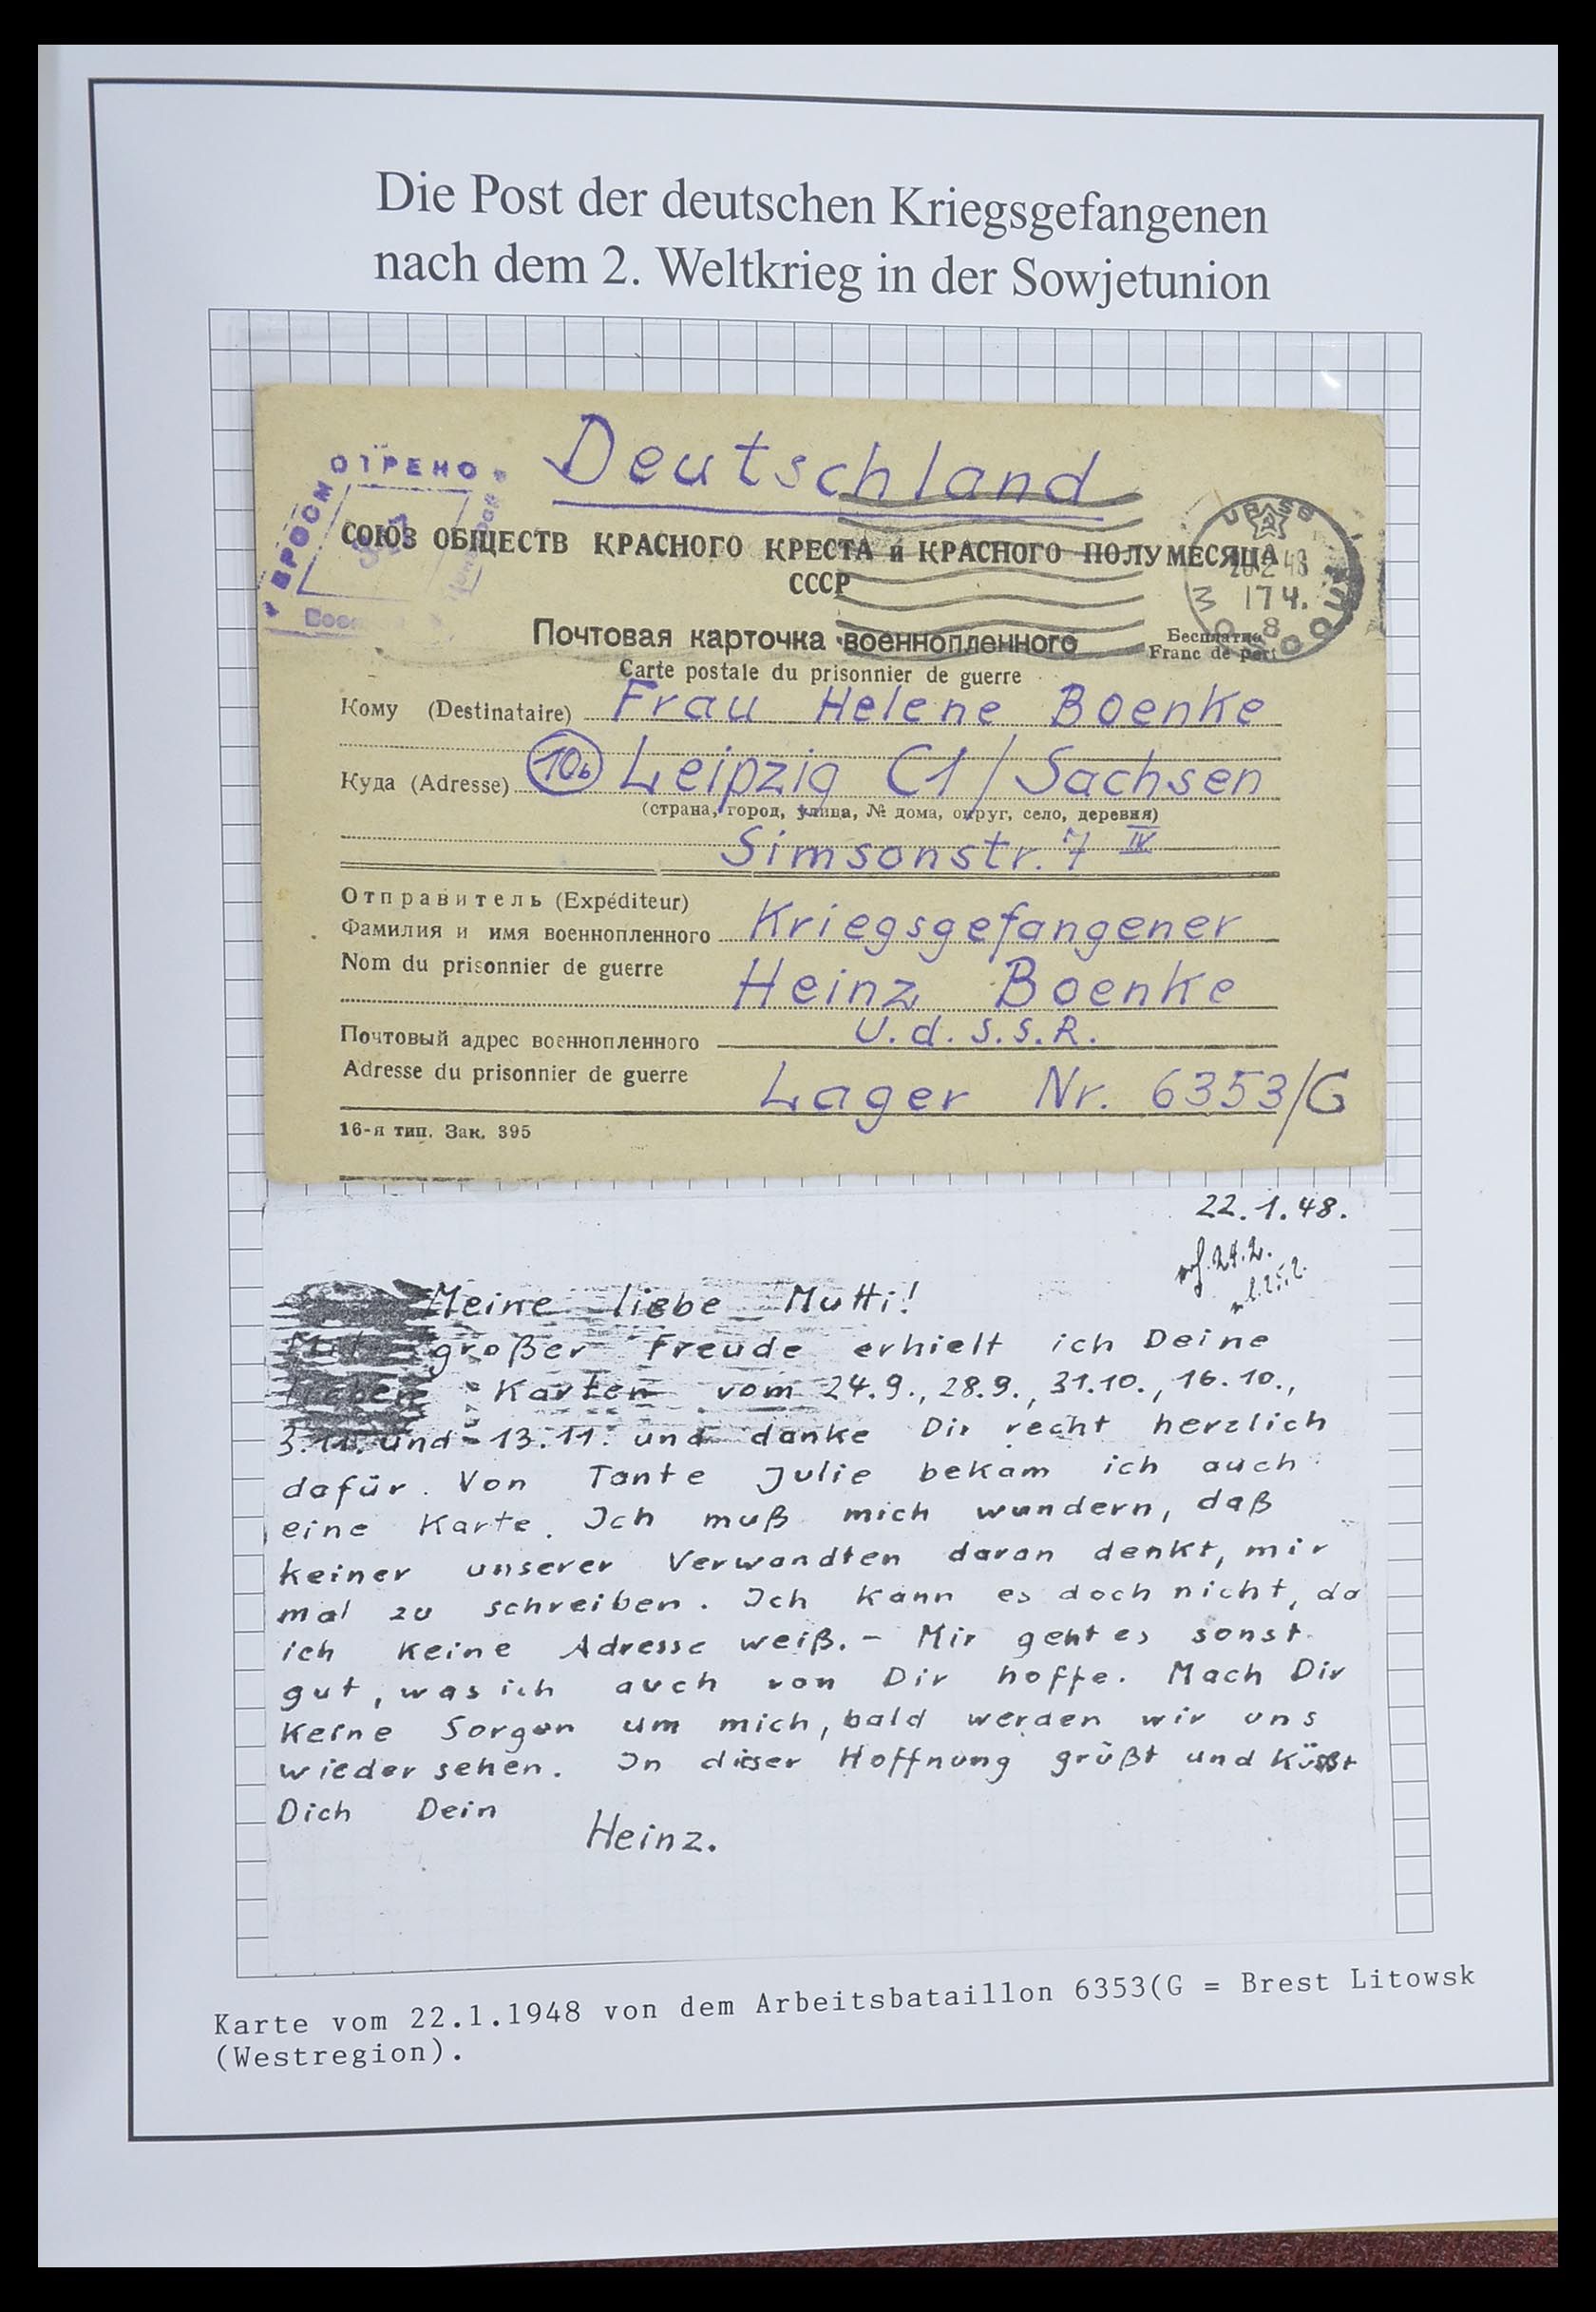 Die Post der deutschen Kriegsgefangenen
nach dem 2. Weltkrieg in der Sowjetunion
Deutschland
СОЮЗ ОБЩЕСТВ КРАСНОГО КРЕСТА и КРАСНОГО ПОЛУМЕСЯЦА
СССР
Почтовая карточка военнопленного
Бесплатно
Franc de port
Carte postale du prisonnier de guerre
Кому (Destinataire) Frau Helene Boenke
Куда (Adresse) 10b Leipzig C1 / Sachsen
(страна, город, улица, № дома, округ, село, деревня)
Simsonstr. 7 IV
Отправитель (Expéditeur)
Фамилия и имя военнопленного Kriegsgefangener
Nom du prisonnier de guerre
Heinz Boenke
Почтовый адрес военнопленного U.d.S.S.R.
Adresse du prisonnier de guerre
Lager Nr. 6353/G
16-я тип. Зак. 395
22.1.48.
24.2.
25.2.
Meine liebe Mutti!
Mit großer Freude erhielt ich Deine
lieben Karten vom 24.9., 28.9., 31.10., 16.10.,
3.11. und 13.11. und danke Dir recht herzlich
dafür. Von Tante Julie bekam ich auch
eine Karte. Ich muß mich wundern, daß
keiner unserer Verwandten daran denkt, mir
mal zu schreiben. Ich kann es doch nicht, da
ich keine Adresse weiß. – Mir geht es sonst
gut, was ich auch von Dir hoffe. Mach Dir
keine Sorgen um mich, bald werden wir uns
wieder sehen. In dieser Hoffnung grüßt und küßt
Dich Dein
Heinz.
Karte vom 22.1.1948 von dem Arbeitsbataillon 6353(G = Brest Litowsk
(Westregion).